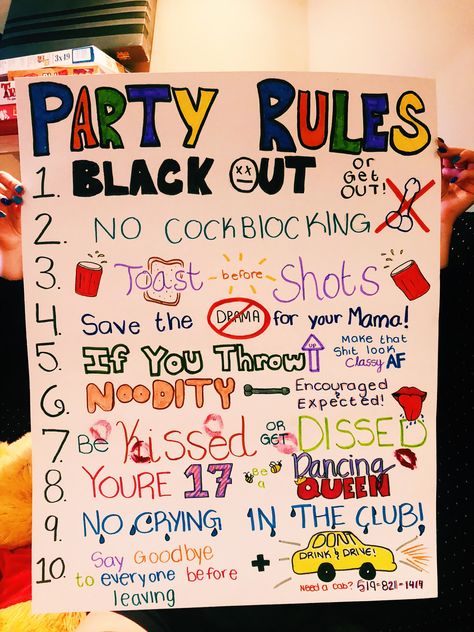 3x19
PARTY RULES
1. BLACK OUT or Get OUT!
2. NO COCKBLOCKING
3. Toast before Shots
4. Save the DRAMA for your Mama!
5. If You Throw UP Make that Shit look Classy AF
6. NOODITY Encouraged Expected!
7. Be Kissed OR GET DISSED
8. YOURE 17 Be a Dancing QUEEN
9. NO CRYING IN THE CLUB!
10. Say Goodbye to everyone before leaving + DONT DRINK & DRIVE!
Need a cab? 519-821-1419